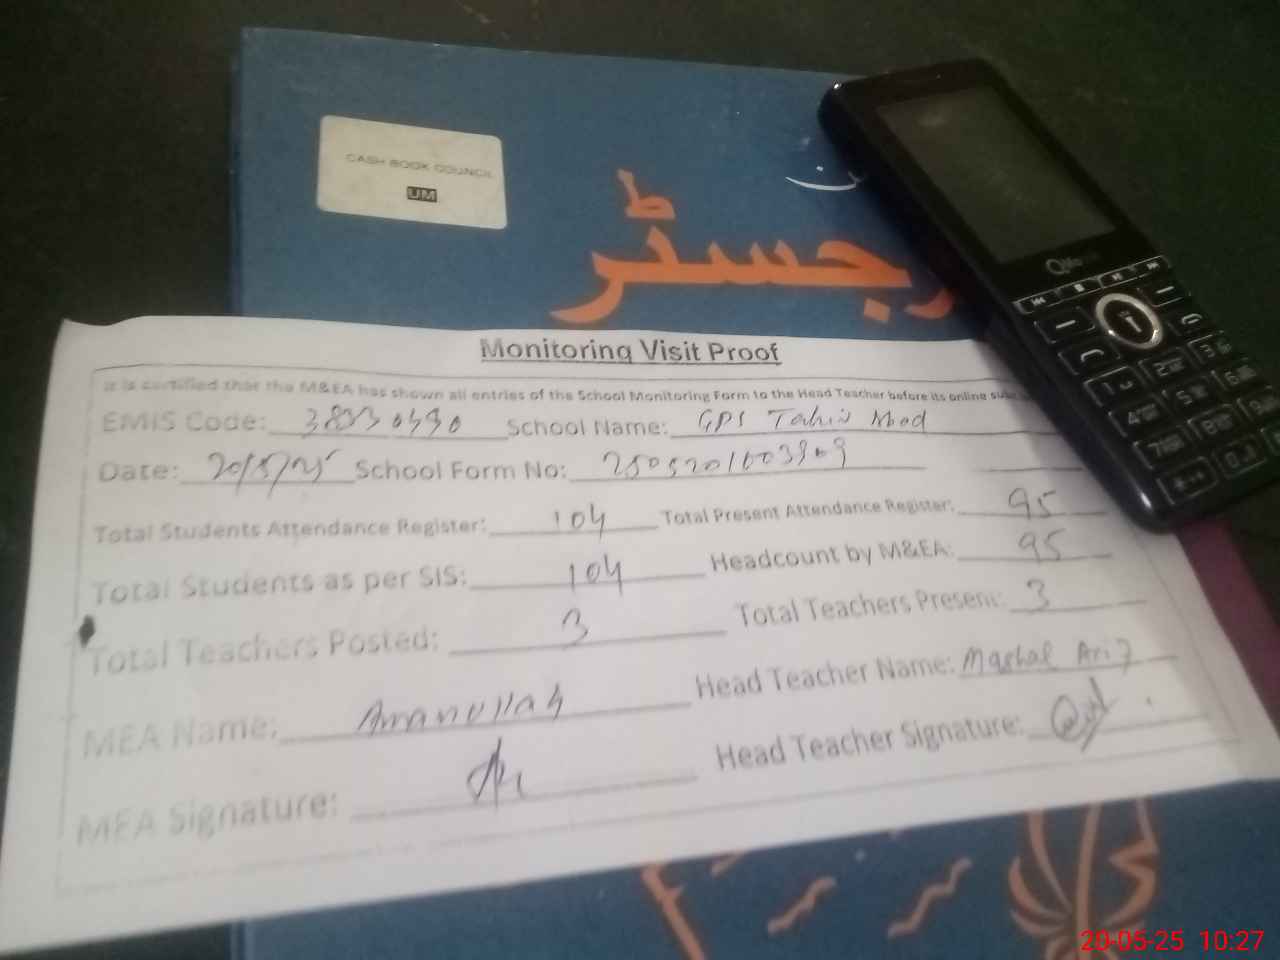 CASH BOOK COUNCIL
UM
رجسٹر
Monitoring Visit Proof
It is certified that the M&EA has shown all entries of the School Monitoring Form to the Head Teacher before its online
EMIS Code: School Name: GPS Tahir Mhod
Date: 20/5/25 School Form No:
Total Students Attendance Register: 104 Total Present Attendance Register: 95
Total Students as per SIS: 104 Headcount by M&EA: 95
Total Teachers Posted: 3 Total Teachers Present: 3
MEA Name: Amanullah Head Teacher Name: Mashal
MEA Signature: Head Teacher Signature:
20-05-25 10:27